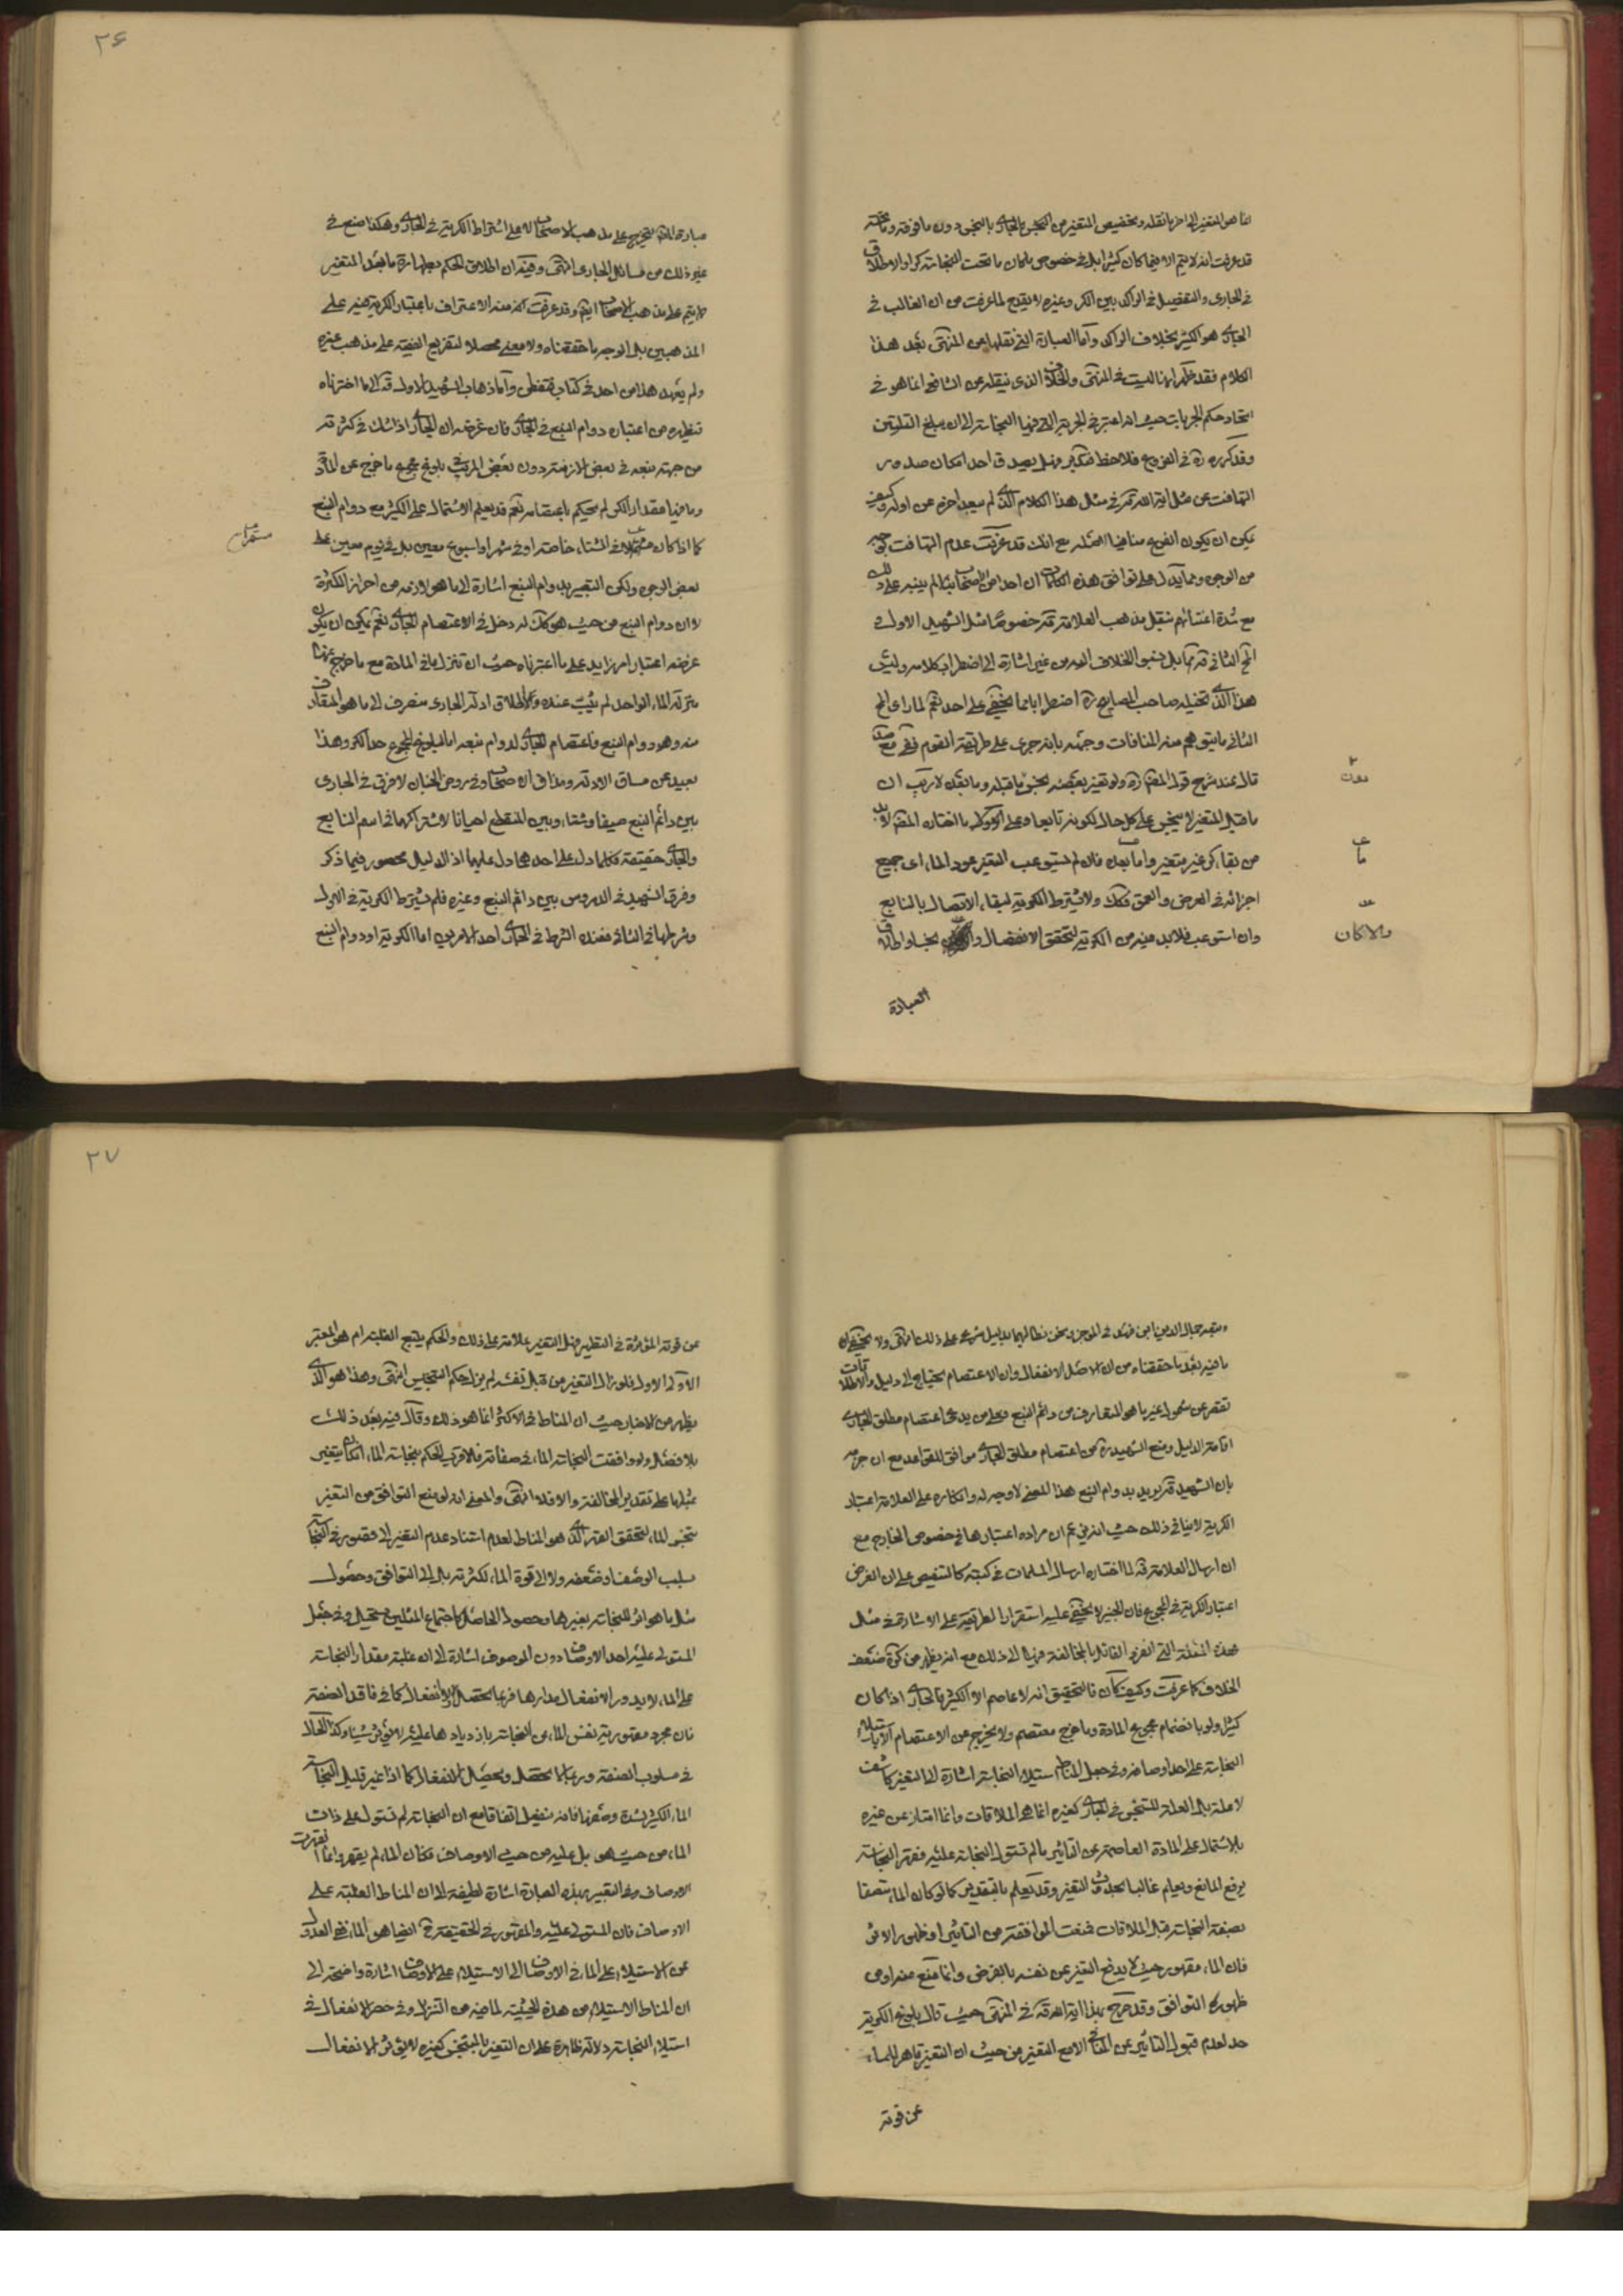 انما هو المتغير الى اخر ما نقله وتخصيص المتغير من النجس بالجاري بالتنجس دون ما فوقه وما تحته
قد عرفت انه لا يتم الا فيما كان كثيرا بل في خصوص بلدان ما تحت النجاسة كرا والاطلاق
في الجاري والتفصيل في الراكد بين الكر وغيره لا يقدح لما عرفت من ان الغالب في
الجاري هو الكثير بخلاف الراكد واما العبارة التي نقلها من المنتهى بعد هذا
الكلام فقد ظهر انها ليست في المنتهى والخلاف الذي ينقله عن الشافعي انما هو في
اتحاد حكم الجريات حيث انه اعتبر في الجرية التي فيها النجاسة الى ان يبلغ القلتين
وقد كرره ره في الفروع فلاحظ فتدبر وهل يصدق احد امكان صدور
التهافت عن مثل اية الله قده في مثل هذا الكلام الذي لم يبعد اخره عن اوله وكيف
يمكن ان يكون الفرع منافيا لاصله مع انك قد عرفت عدم التهافت بوجه
من الوجوه ومما يدل على توافق هذه الكلمات ان احدا من الاصحاب لم ينبه على ذلك
مع شدة اعتنائهم بنقل مذهب العلامة قده خصوصا مثل الشهيد الاول و
المحقق الثاني قدهما بل نسبوا الخلاف اليه من غير اشارة الى اضطراب كلامه وليس
هذا الذي تخيله صاحب المصابيح ره اضطرابا مما يخفى على احد نعم لما راى المحقق
الثاني ما يتوهم منه المنافات وجهه بانه جرى على طريقة القوم ففي مع صد
قال عند شرح قول المصنف ره ولو تغير بعضه نجس ما قبله وما بعده لا ريب ان
ما قبل المتغير لا ينجس على كل حال لكونه تابعا وعلى اشتراط ما اختاره المصنف لا بد
من بقاء كر غير متغير واما بعده فان لم يستوعب التغير عمود الماء اى جميع
اجزائه في العرض والعمق فكك ولا يشترط الكرية لبقاء الاتصال بالنابع
وان استوعب فلا بد فيه من الكرية لتحقق الانفصال والا كان نجسا واطلاق
العبارة
والا كان
٢۶
عبارة المصنف تخريج على مذهب الاصحاب لا على اشتراط الكرية في الجاري وهكذا صنع في
غير ذلك من مسائل الجاري انتهى وفيه ان اطلاق الحكم بطهارة ما بعد المتغير
لا يتم على مذهب الاصحاب ايضا وقد عرفت انه منه الاعتراف باعتبار الكرية فيه على
المذهبين بل الوجه ما حققناه ولا معنى محصلا لتفريع الفقيه على مذهب غيره
ولم يعهد هذا من احد في كتاب فتفطن واما ذهاب الشهيد الاول قده الى ما اخترناه
فيظهر من اعتباره دوام النبع في الجاري فان غرضه ان الجاري اذا شك في كثرته
من جهة نبعه في بعض الازمنة دون بعض المريب في بلوغ مجموع ما خرج عن المادة
وما فيها مقدار الكر لم يحكم باعتصامه نعم قد يعلم الاشتمال على الكثير مع دوام النبع
كما اذا كان مشتملا في الشتاء خاصة او في شهر او اسبوع معين بل في يوم معين على
بعض الوجوه ولكن التعبير بدوام النبع اشارة الى ما هو لازمه من احراز الكثرة
لا ان دوام النبع من حيث هو كك له دخل في الاعتصام الجاري نعم يمكن ان يكون
غرضه اعتبار امر زايد على ما اعتبرناه حيث ان تنزل ما في المادة مع ما خرج عنها
منزلة الماء الواحد لم يثبت عنده والاطلاق ادلة الجاري منصرف الى ما هو المتعارف
منه وهو دوام النبع فاعتصام الجاري لدوام نبعه اما لبلوغ المجموع حد الكر وهذا
بعيد عن مساق الادلة ومذاق الاصحاب وفي روض الجنان لا فرق في الجاري
بين دائم النبع صيفا وشتاء وبين المنقطع احيانا لاشتراكهما في اسم النابع
والجاري حقيقة فكلما دل على احدهما دل عليهما اذ الدليل محصور فيما ذكر
وفرق الشهيد في الدروس بين دائم النبع وغيره فلم يشترط الكرية في الاول
وشرطها في الثاني فعنده الشرط في الجاري احد الامرين اما الكرية او دوام النبع
وتبعه جمال الدين ابن فهد في الموجز ونحن نطالبهما بدليل شرعي على ذلك انتهى ولا يخفى
ما فيه بعد ما حققناه من ان الاصل الانفعال وان الاعتصام يحتاج الى دليل والاطلاقات
تقصر عن شمول غير ما هو المتعارف من دائم النبع وعلى من يدعي اعتصام مطلق الجاري
اقامة الدليل ومنع الشهيد ره عن اعتصام مطلق الجاري موافق للقواعد مع ان جزمه
بان الشهيد قده يريد بدوام النبع هذا المعنى لا وجه له وانكاره على العلامة اعتبار
الكرية لا ينافي ذلك حيث انه زعم ان مراده اعتبارها في خصوص الخارج مع
ان ارسال العلامة قده لما اختاره ارسال المسلمات في كتبه كالتنصيص على ان الغرض
اعتبار الكرية في المجموع فان الخبير لا يخفى عليه استقرار الطريقة على الاشارة في مثال
هذه المسئلة التي انفرد القائل بالمخالفة فيها الى ذلك مع انه يظهر من كره ضعف
الخلاف كما عرفت وكيف كان فالتحقيق انه لا عاصم الا الكثير فالجاري اذا كان
كثيرا ولو بانضمام مجموع المادة وما خرج معتصم ولا يخرج عن الاعتصام الا باستيلاء
النجاسة على احد اوصافه وفي جعل المناط استيلاء النجاسة اشارة الى ان التغير كاشف
لا علة بل العلة للتنجس في الجاري كغيره انما هي الملاقات وانما امتاز عن غيره
بالاشتمال على المادة العاصمة عن التاثير ما لم تستول النجاسة عليه فقهر النجاسة
يرفع المانع ويعلم غالبا بحدوث التغير وقد يعلم بالتقدير كما لو كان الماء متصفا
بصفة النجاسة قبل الملاقات فمنعت الموافقة من التاثير او ظهور الاثر
فان الماء مقهور حيث لا يدفع التغير عن نفسه بالفرض وانما منع منه او من
ظهوره التوافق وقد صرح بهذا اية الله قده في المنتهى حيث قال بلوغ الكرية
حد لعدم قبول التاثير عن الملاقي الا مع التغير من حيث ان التغير قاهر للماء
عن قوته
٢٧
عن قوته المؤثرة في التطهير فهل التغير علامة على ذلك والحكم يتبع الغلبة ام هو المعتبر
الاولى الاول فلو زال التغير من قبل نفسه لم يزل حكم التنجيس انتهى وهذا هو الذي
يظهر من الاخبار حيث ان المناط في الاكثر انما هو ذلك وقال فيه بعد ذلك
بلا فصل ولو وافقت النجاسة الماء في صفاته فالاقرب الحكم بنجاسة الماء ان كان يتغير
بمثلها على تقدير المخالفة والا فلا انتهى والمعنى انه لو منع التوافق من التغير
تنجس الماء لتحقق القهر الذي هو المناط لعدم استناد عدم التغير الى قصور في النجاسة
بسلب الوصف او ضعفه ولا الى قوة الماء لكثرته بل الى التوافق وحصول
مثل ما هو اثر للنجاسة بغيرها وحصول الحاصل كاجتماع المثلين مستحيل وفي جعل
المستولى عليه احد الاوصاف دون الموصوف اشارة الى ان غلبة مقدار النجاسة
على الماء لا يدور الانفعال مدارها فربما يحصل ولا انفعال كما في فاقد الصفة
فان مجرد مقهورية نفس الماء من النجاسة بازديادها عليه لا يؤثر شيئا وكذا الحال
في مسلوب الصفة وربما لا يحصل ويحصل الانفعال كما اذا غير قليل النجاسة
الماء الكثير لشدة وصفها فانه ينفعل اتفاقا مع ان النجاسة لم تستول على ذات
الماء من حيث هو بل عليه من حيث الاوصاف فكان الماء لم يقهر وانما انقهرت
الاوصاف وفي التعبير بهذه العبارة اشارة لطيفة الى ان المناط الغلبة على
الاوصاف فان المستولى عليه والمقهور في الحقيقة ح ايضا هو الماء ففي العدول
عن الاستيلاء على الماء في الاوصاف الى الاستيلاء على الاوصاف اشارة واضحة الى
ان المناط الاستيلاء من هذه الحيثية لما فيه من التنزل وفي حصر الانفعال في
استيلاء النجاسة دلالة ظاهرة على ان التغير بالمتنجس كغيره لا يؤثر الانفعال